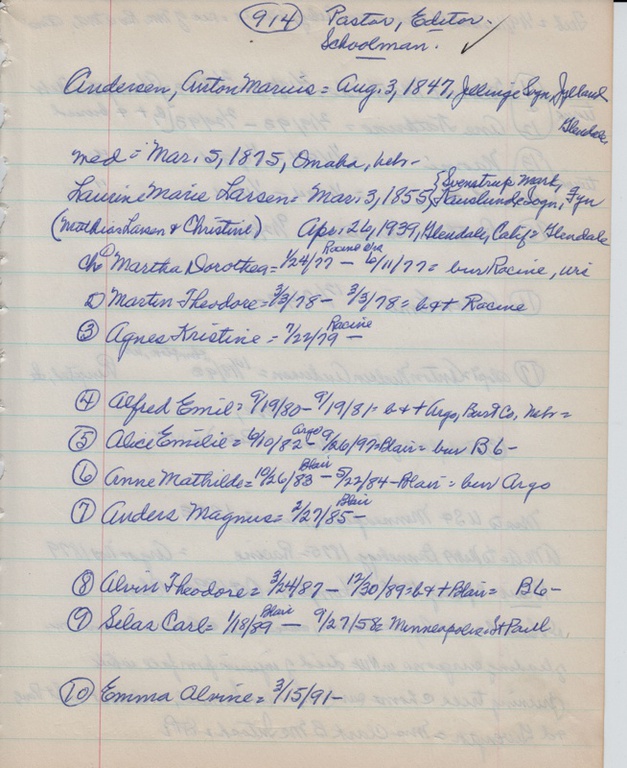 914 Pastor, Editor -
Schoolman.
Andersen, Anton Marius = Aug. 3, 1847, Jellinge Sogn, Jylland
Glendale
med = Mar. 5, 1875, Omaha, Nebr -
Laurine Marie Larsen = Mar. 3, 1855 { Svenstrup Mark,
Sogn, Fyn
(Matthias Larsen & Christine) Apr. 26, 1939, Glendale, Calif = Glendale
Racine Wis
Ch① Martha Dorothea = 1/24/77 - 6/11/77 = bur Racine, Wis
2) Martin Theodore = 3/3/78 - 3/3/78 = b & + Racine
Racine
③ Agnes Kristine = 7/22/79 -
④ Alfred Emil = 9/19/80 - 9/19/81 = b & + Argo, Burt Co, Nebr =
Argo
⑤ Alice Emilie = 6/10/82 - 9/26/97 = Blair = bur B6 -
Blair
⑥ Anne Mathilde = 10/26/83 - 5/22/84 - Blair = bur Argo
Blair
⑦ Anders Magnus = 2/27/85 -
⑧ Alvin Theodore = 3/24/87 - 12/30/89 = b & + Blair = B6 -
Blair
⑨ Silas Carl = 1/18/89 - 9/27/58 = Minneapolis = St Paul
⑩ Emma Alvine = 3/15/91 -